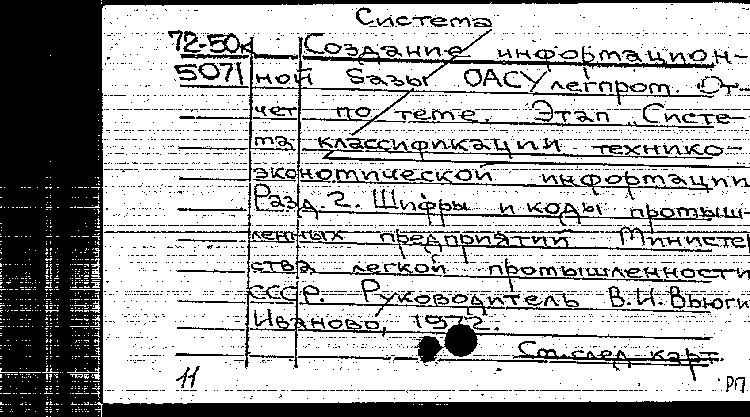 Система
72-50к Создание информацион-
5071 ной базы ОАСУ легпром. От-
чет по теме. Этап „Систе-
ма классификации технико-
экономической информации
Разд. 2. Шифры и коды промыш
ленных предприятий Министе
ства легкой промышленности
СССР. Руководитель В.И. Вьюги
Иваново, 1972.
См. след. карт.
11 РП